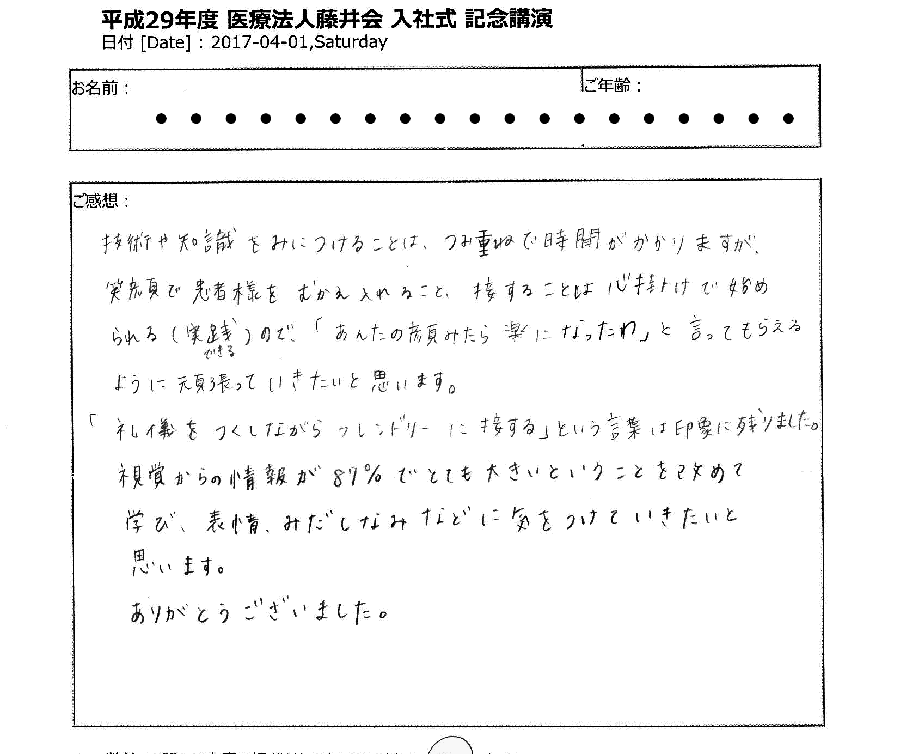 平成29年度 医療法人藤井会 入社式 記念講演
日付 [Date] : 2017-04-01,Saturday
お名前 :
ご年齢 :
ご感想 :
技術や知識をみにつけることは、つみ重ねで時間がかかりますが、
笑顔で患者様をむかえ入れること、接することは心掛けで始め
られる(実践)ので、「あんたの顔みたら楽になったわ」と言ってもらえる
できる
ように頑張っていきたいと思います。
「礼儀をつくしながらフレンドリーに接する」という言葉は印象に残りました。
視覚からの情報が87%でとても大きいということを改めて
学び、表情、みだしなみなどに気をつけていきたいと
思います。
ありがとうございました。